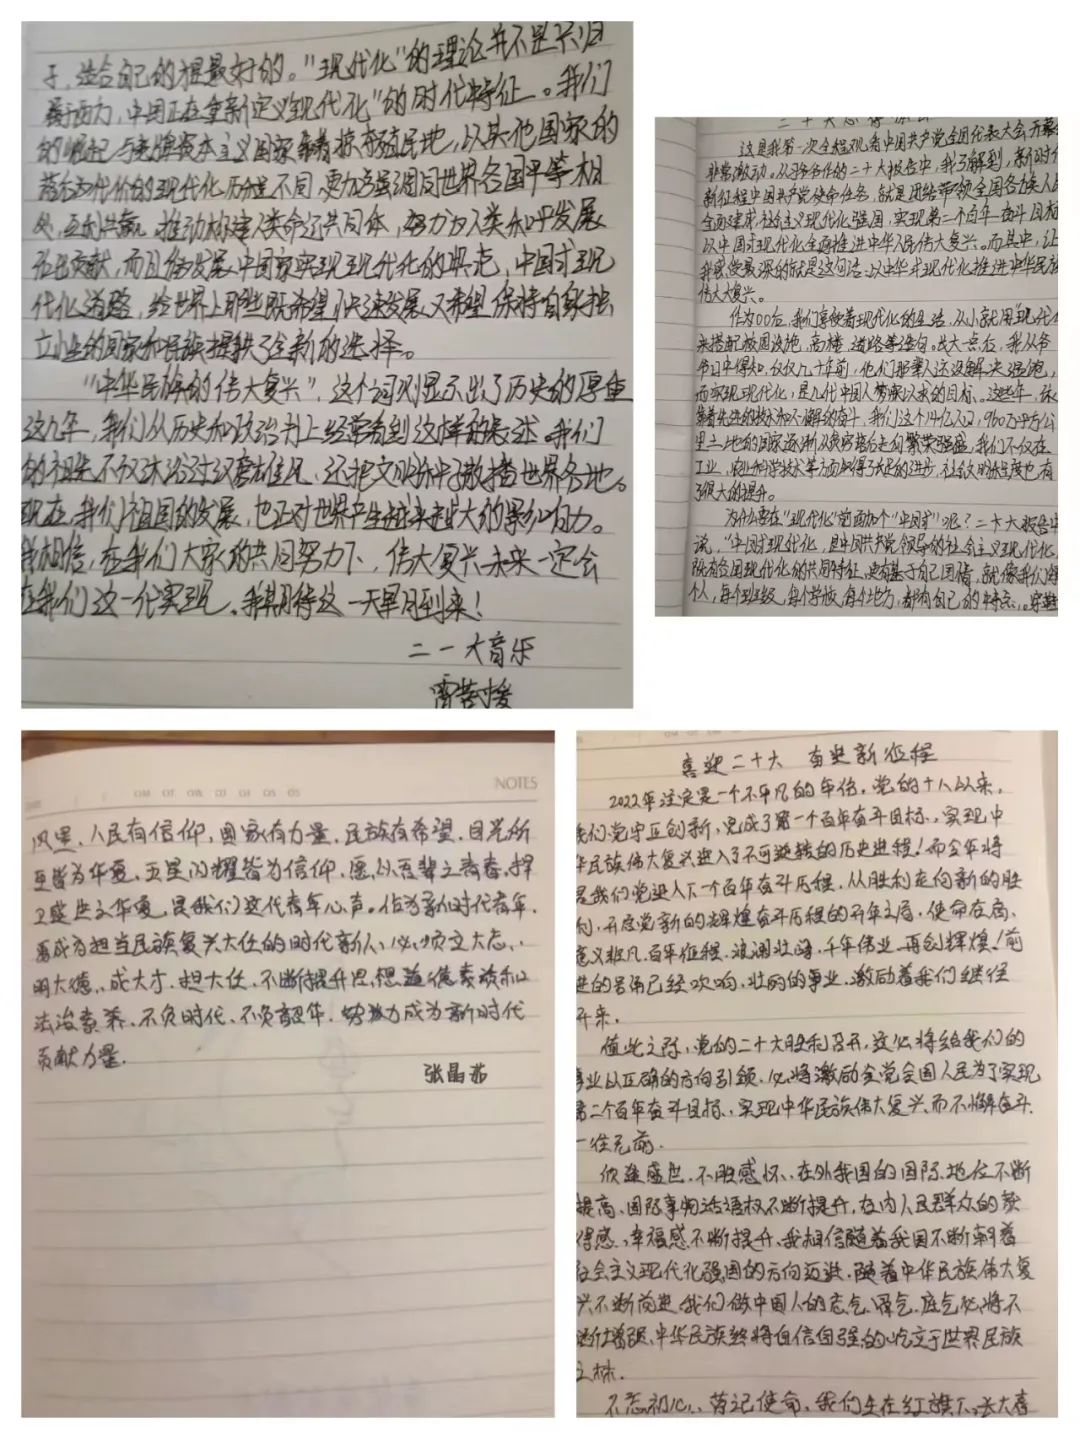 子，适合自己的才是最好的。"现代化"的理论并不是只归
属于西方，中国正在重新定义"现代化"的时代特征。我们
的崛起与老牌资本主义国家靠着掠夺殖民地，以其他国家的
落后为代价的现代化历程不同，更加强调同世界各国平等相
处，互利共赢，推动构建人类命运共同体，努力为人类和平发展
作出贡献，而且作为发展中国家实现现代化的典范，中国式现
代化道路，给世界上那些既希望快速发展又希望保持自身独
立性的国家和民族提供了全新的选择。
"中华民族的伟大复兴"，这个词则显示出了历史的厚重
这几年，我们从历史和政治书上经常看到这样的表述。我们
的祖先不仅沐浴过汉唐雄风，还把文明的种子散播世界各地。
现在，我们祖国的发展，也正对世界产生越来越大的影响力。
我相信，在我们大家的共同努力下，伟大复兴未来一定会
在我们这一代实现，我期待这一天早日到来！
二一大音乐
二十大
这是我第一次全程观看中国共产党全国代表大会开幕
非常激动。从习爷爷的二十大报告中，我了解到，新时代
新征程中国共产党使命任务，就是团结带领全国各族人民
全面建成社会主义现代化强国，实现第二个百年奋斗目标
以中国式现代化全面推进中华民族伟大复兴。而其中，让
我感受最深的就是这句话：以中华式现代化推进中华民族
伟大复兴。
作为00后，我们享受着现代化的生活，从小就用"现代化
来搭配校园设施，高楼，道路等造句。长大一点后，我从爷
爷口中得知，仅仅几十年前，他们那辈人还没解决温饱，
而实现现代化，是几代中国人梦寐以求的目标。这些年，依
靠着先进的技术和不懈的奋斗，我们这个14亿人口，960万平方公
里土地的国家逐渐从贫穷落后走向繁荣强盛，我们不仅在
工业，农业科学技术等方面取得了长足的进步，社会文明程度也有
了很大的提升。
为什么要在"现代化"前面加个"中国式"呢？二十大报告中
说，"中国式现代化，是中国共产党领导的社会主义现代化，
既有各国现代化的共同特征，更有基于自己国情，就像我们每
个人，每个班级，每个学校，每个地方，都有自己的特点。穿鞋
NOTES
风里，人民有信仰，国家有力量，民族有希望，目光所
至皆为华夏，五星闪耀皆为信仰，愿以吾辈之青春，捍
卫盛世之华夏，是我们这代青年心声。作为新时代青年，
要成为担当民族复兴大任的时代新人，必须立大志、
明大德、成大才、担大任，不断提升思想道德素质和
法治素养，不负时代，不负韶华，努力成为新时代
贡献力量。
张晶茹
喜迎二十大 奋进新征程
2022年注定是一个不平凡的年份，党的十八以来，
我们党守正创新，完成了第一个百年奋斗目标，实现中
华民族伟大复兴进入了不可逆转的历史进程！而今年将
是我们党进入下一个百年奋斗历程，从胜利走向新的胜
利，开启党新的辉煌奋斗历程的开年之局，使命在肩，
意义非凡，百年征程，波澜壮阔，千年伟业，再创辉煌！前
进的号角已经吹响，壮丽的事业，激励着我们继往
开来。
值此之际，党的二十大胜利召开，这必将给我们的
事业以正确的方向引领，必将激励全党全国人民为了实现
第二个百年奋斗目标，实现中华民族伟大复兴而不懈奋斗，
一往无前。
欣逢盛世，不胜感怀，在外我国的国际地位不断
提高，国际事物话语权不断提升，在内人民群众的获
得感，幸福感不断提升，我相信随着我国不断朝着
社会主义现代化强国的方向迈进，随着中华民族伟大复
兴不断前进，我们做中国人的志气、骨气、底气必将不
断增强，中华民族终将自信自强的屹立于世界民族
之林。
不忘初心，牢记使命，我们生在红旗下，长大春